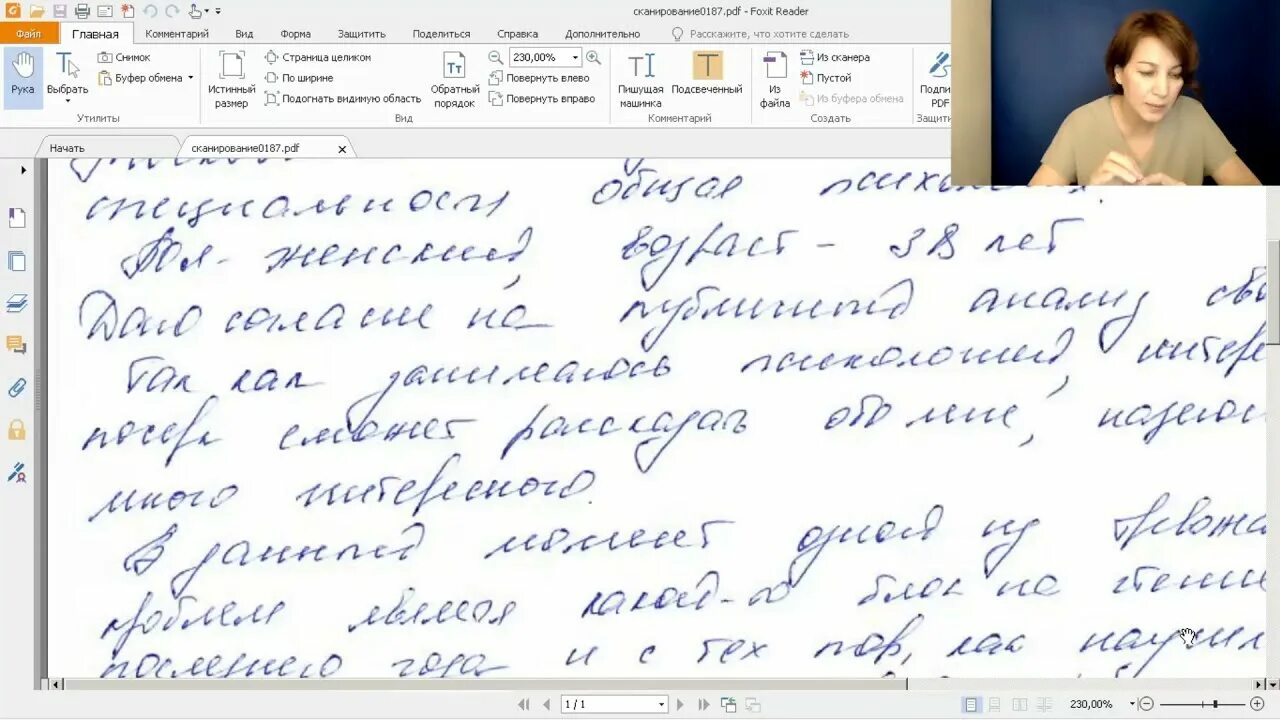 сканирование0187.pdf - Foxit Reader
Файл Главная Комментарий Вид Форма Защитить Поделиться Справка Дополнительно Расскажите, что хотите сделать
Рука
Выбрать
Снимок
Буфер обмена
Утилиты
Истинный размер
Страница целиком
По ширине
Подогнать видимую область
Вид
Обратный порядок
230,00%
Повернуть влево
Повернуть вправо
Пишущая машинка
Подсвеченный
Комментарий
Из файла
Из сканера
Пустой
Из буфера обмена
Создать
Подпи
PDF
Защити
Начать
сканирование0187.pdf
специальности общая
Пол - женский, возраст - 38 лет
Даю согласие на публичный анализ сво
Так как занимаюсь психологией, интере
почерк сможет рассказать обо мне,
много интересного.
В данный момент одной из тревожа
проблем является какой-то блок на чтени
последнего года и с тех пор, как
1 / 1
230,00%